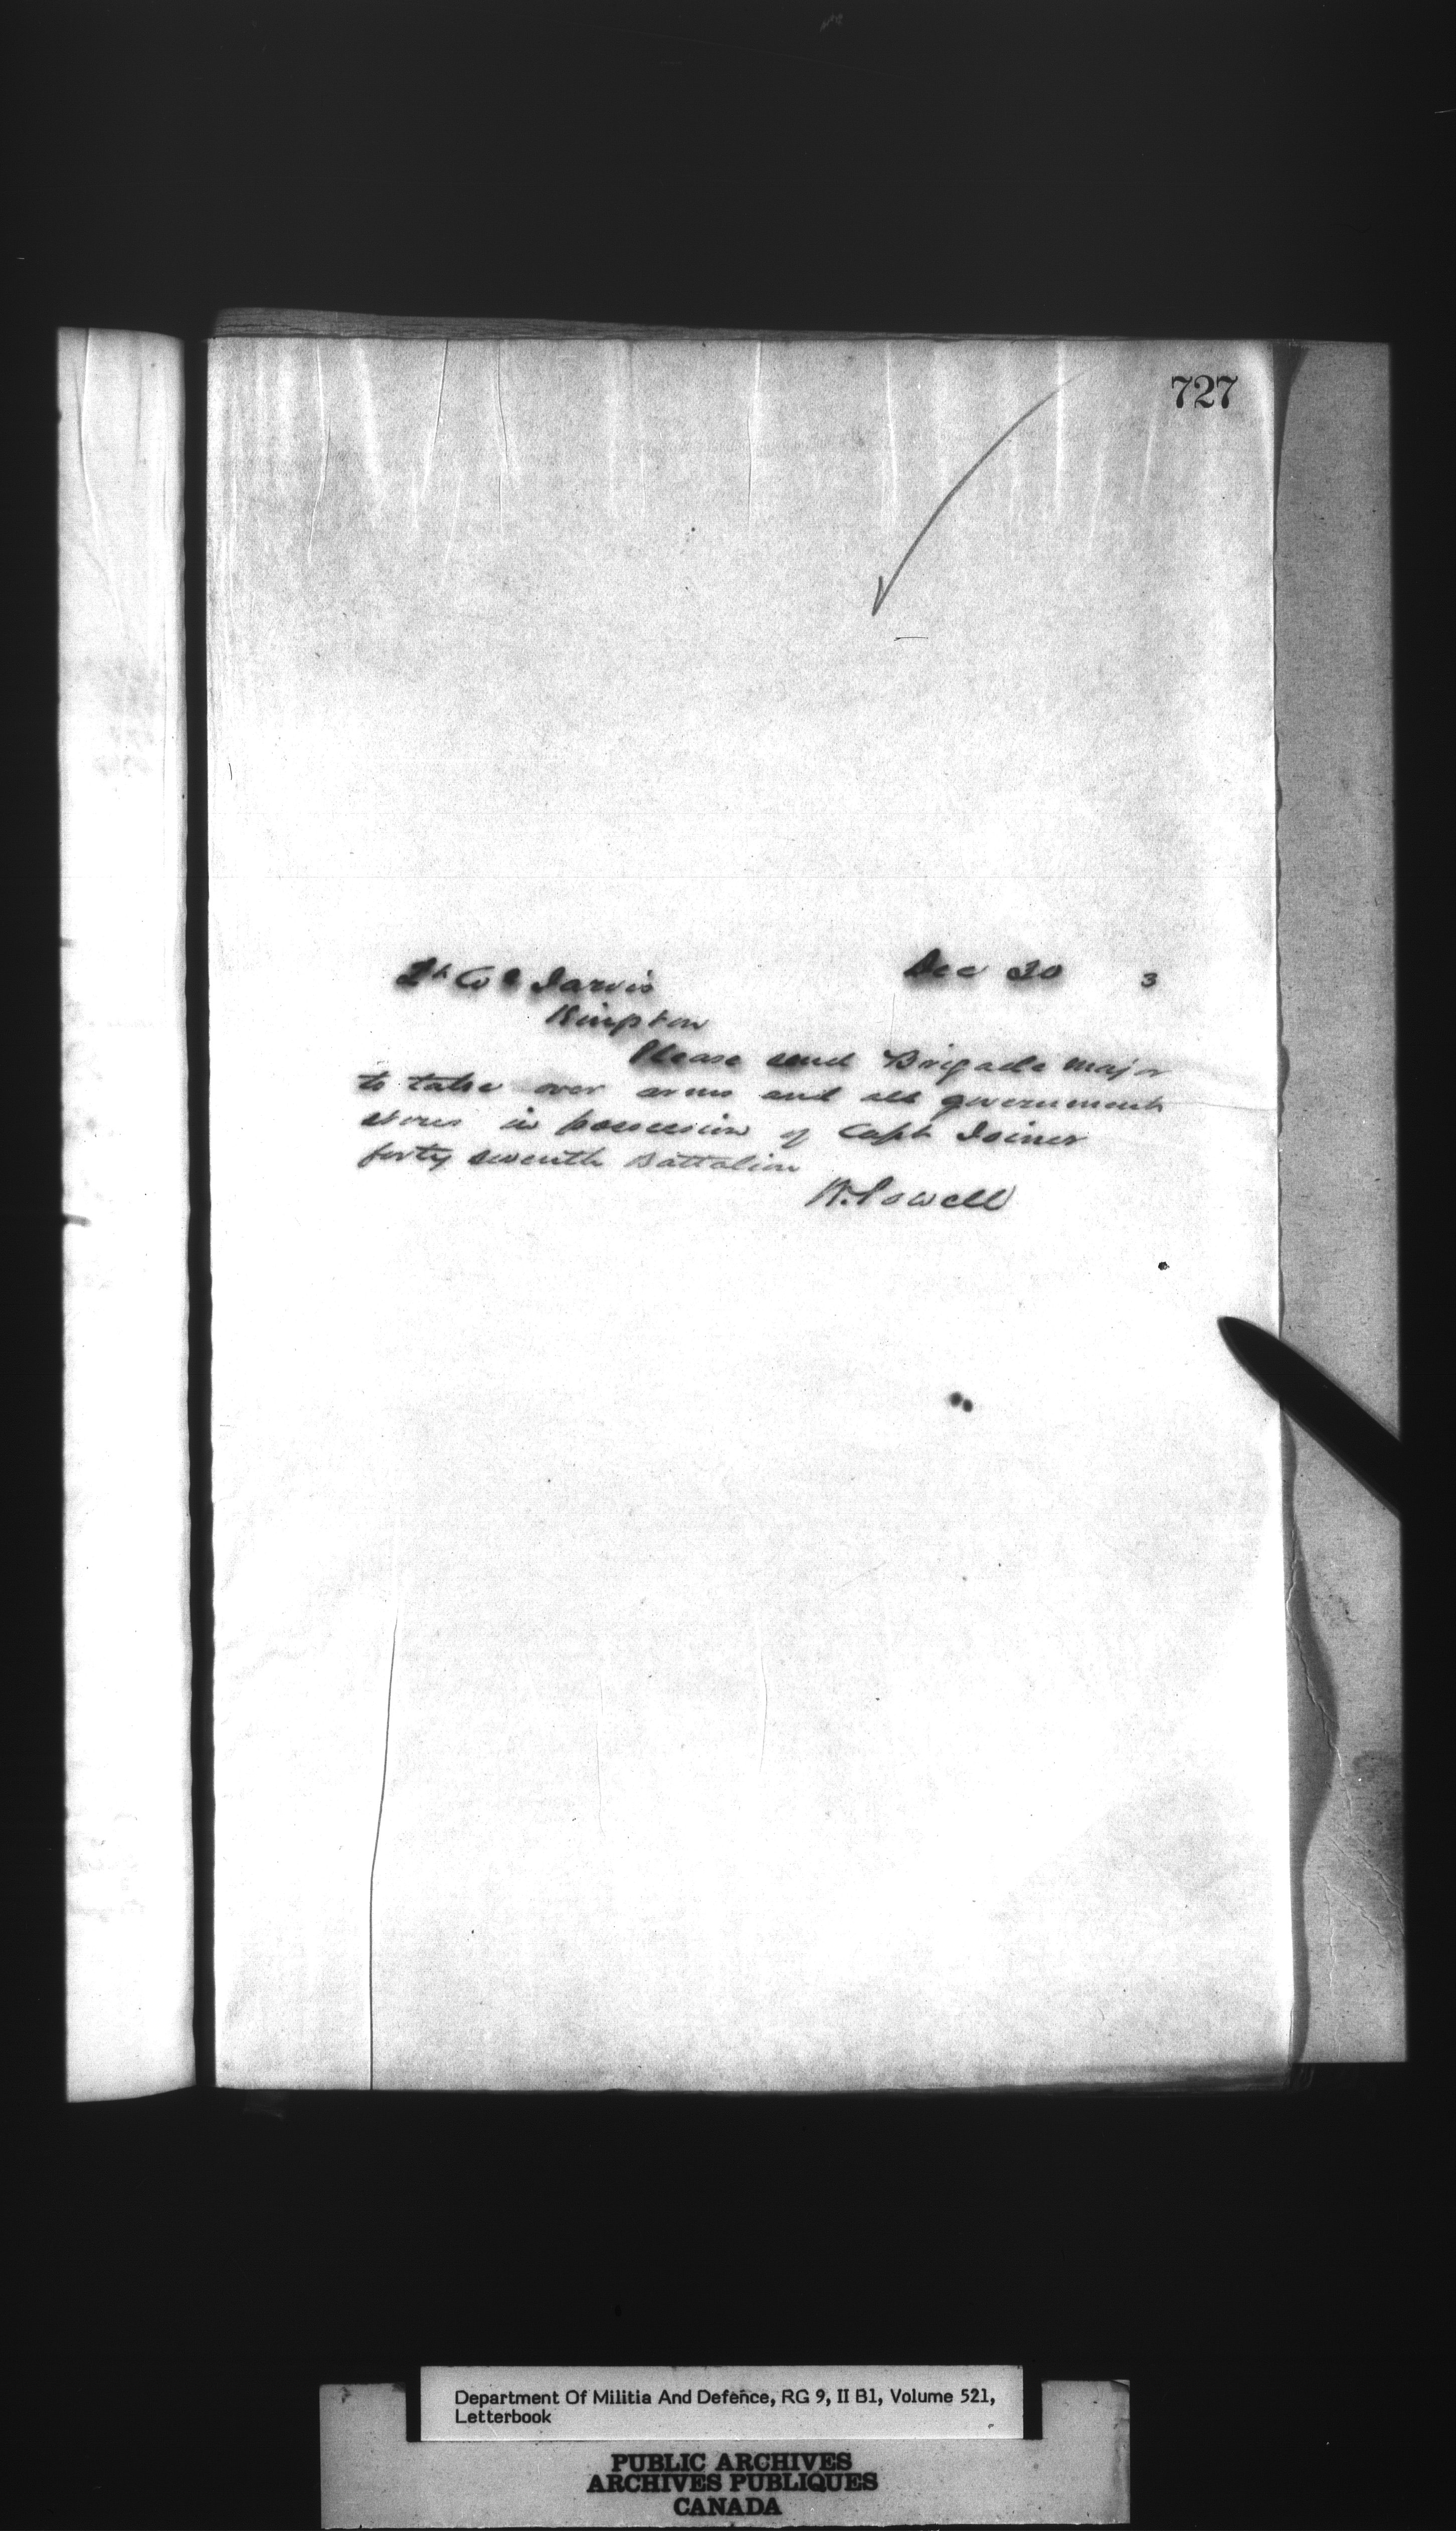 727
Lt Col Jarvis Dec 20 3
Kingston
Please send Brigade Major
to take over arms and all government
stores in possession of Capt Joiner
forty seventh Battalion
W. Powell
Department Of Militia And Defence, RG 9, II B1, Volume 521,
Letterbook
PUBLIC ARCHIVES
ARCHIVES PUBLIQUES
CANADA